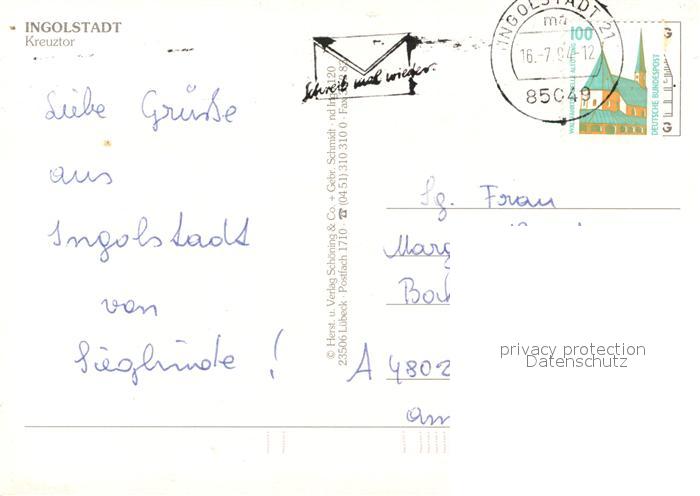 INGOLSTADT
Kreuztor
Schreib mal wieder.
INGOLSTADT 21
ma
16.-7.94-12
85049
100
DEUTSCHE BUNDESPOST
Liebe Grüße
aus
Ingolstadt
von
Sieglinde !
© Herst. u. Verlag Schöning & Co. + Gebr. Schmidt
23506 Lübeck · Postfach 1710 · ☎ (04 51) 310 310 0 · Fax
Sg. Frau
Marg
A 4802
am
privacy protection
Datenschutz